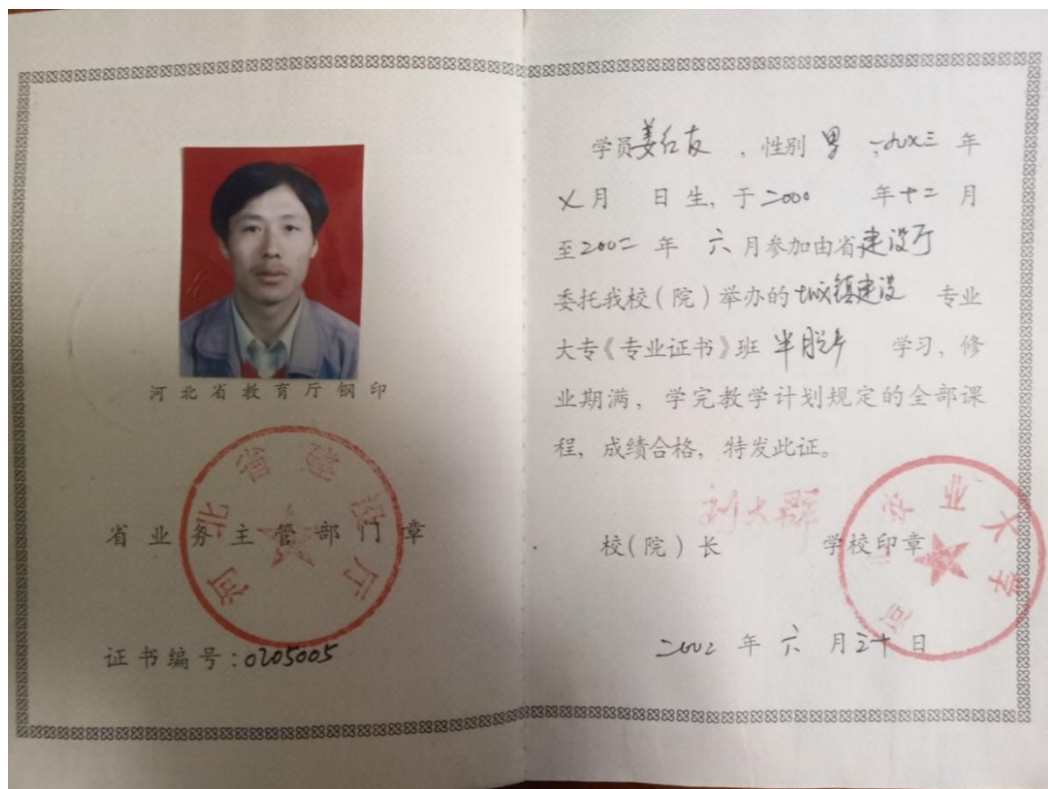 河北省教育厅钢印
河北省建设厅
省业务主管部门章
证书编号：0205005
学员姜红友，性别 男 一九六三 年
七月 日生，于二000 年十二月
至2002 年 六月参加由省建设厅
委托我校（院）举办的城镇建设 专业
大专《专业证书》班 半脱产 学习，修
业期满，学完教学计划规定的全部课
程，成绩合格，特发此证。
刘大群
校（院）长 学校印章
农业大学
2002 年 六 月三十日